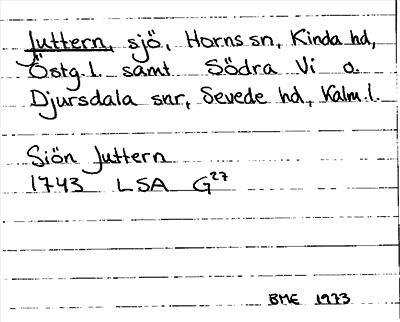 Juttern, sjö, Horns sn, Kinda hd,
Östg. l. samt Södra Vi o.
Djursdala snr, Sevede hd, Kalm. l.
Siön Juttern
1743 LSA G27
BME 1973